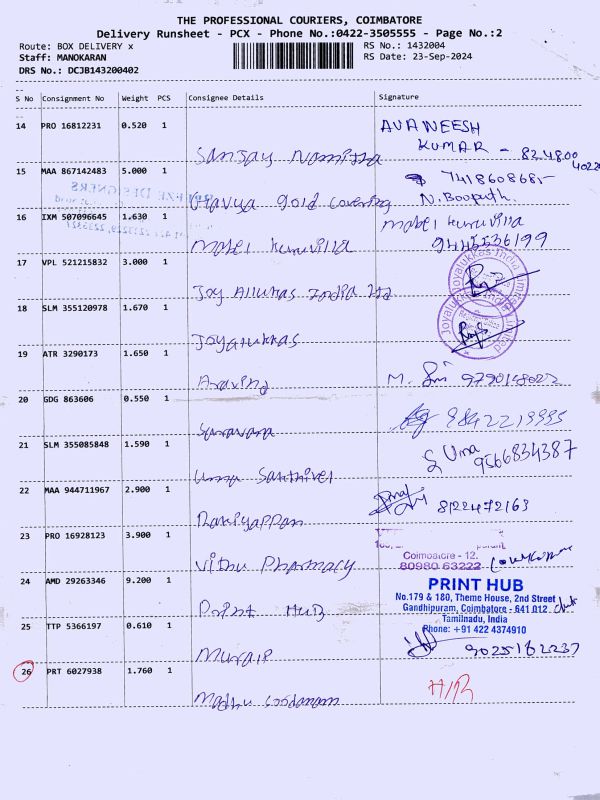 THE PROFESSIONAL COURIERS, COIMBATORE
Delivery Runsheet - PCX - Phone No.:0422-3505555 - Page No.:2
Route: BOX DELIVERY x
RS No.: 1432004
Staff: MANOKARAN
RS Date: 23-Sep-2024
DRS No.: DCJB143200402
S No Consignment No Weight PCS Consignee Details Signature
14 PRO 16812231 0.520 1
AVANEESH
KUMAR - 8248004022
Sanjay Namitha
15 MAA 867142483 5.000 1
7418608685-
N. Boopath.
Viavya gold covering
16 IXM 507096645 1.630 1
Mabel kuruvilla
9445536199
Mabel kuruvilla
17 VPL 521215832 3.000 1
Joyalukkas India Limited
Joy Allukas India Ltd
18 SLM 355120978 1.670 1
Joyalukkas India Limited
Joyalukkas
19 ATR 3290173 1.650 1
M. 9790148022
Aravind
20 GDG 863606 0.550 1
9842219995
Saravana
21 SLM 355085848 1.590 1
S Uma
9566834387
Uma Sakthivel
22 MAA 944711967 2.900 1
8122472163
Rakiyappan
23 PRO 16928123 3.900 1
Coimbatore - 12.
80980 63222
Vithu Pharmacy
24 AMD 29263346 9.200 1
PRINT HUB
No.179 & 180, Theme House, 2nd Street
Gandhipuram, Coimbatore - 641 012
Tamilnadu, India
Phone: +91 422 4374910
Print HUB
25 TTP 5366197 0.610 1
9025162237
Murali
26 PRT 6027938 1.760 1
H/R
Madhu